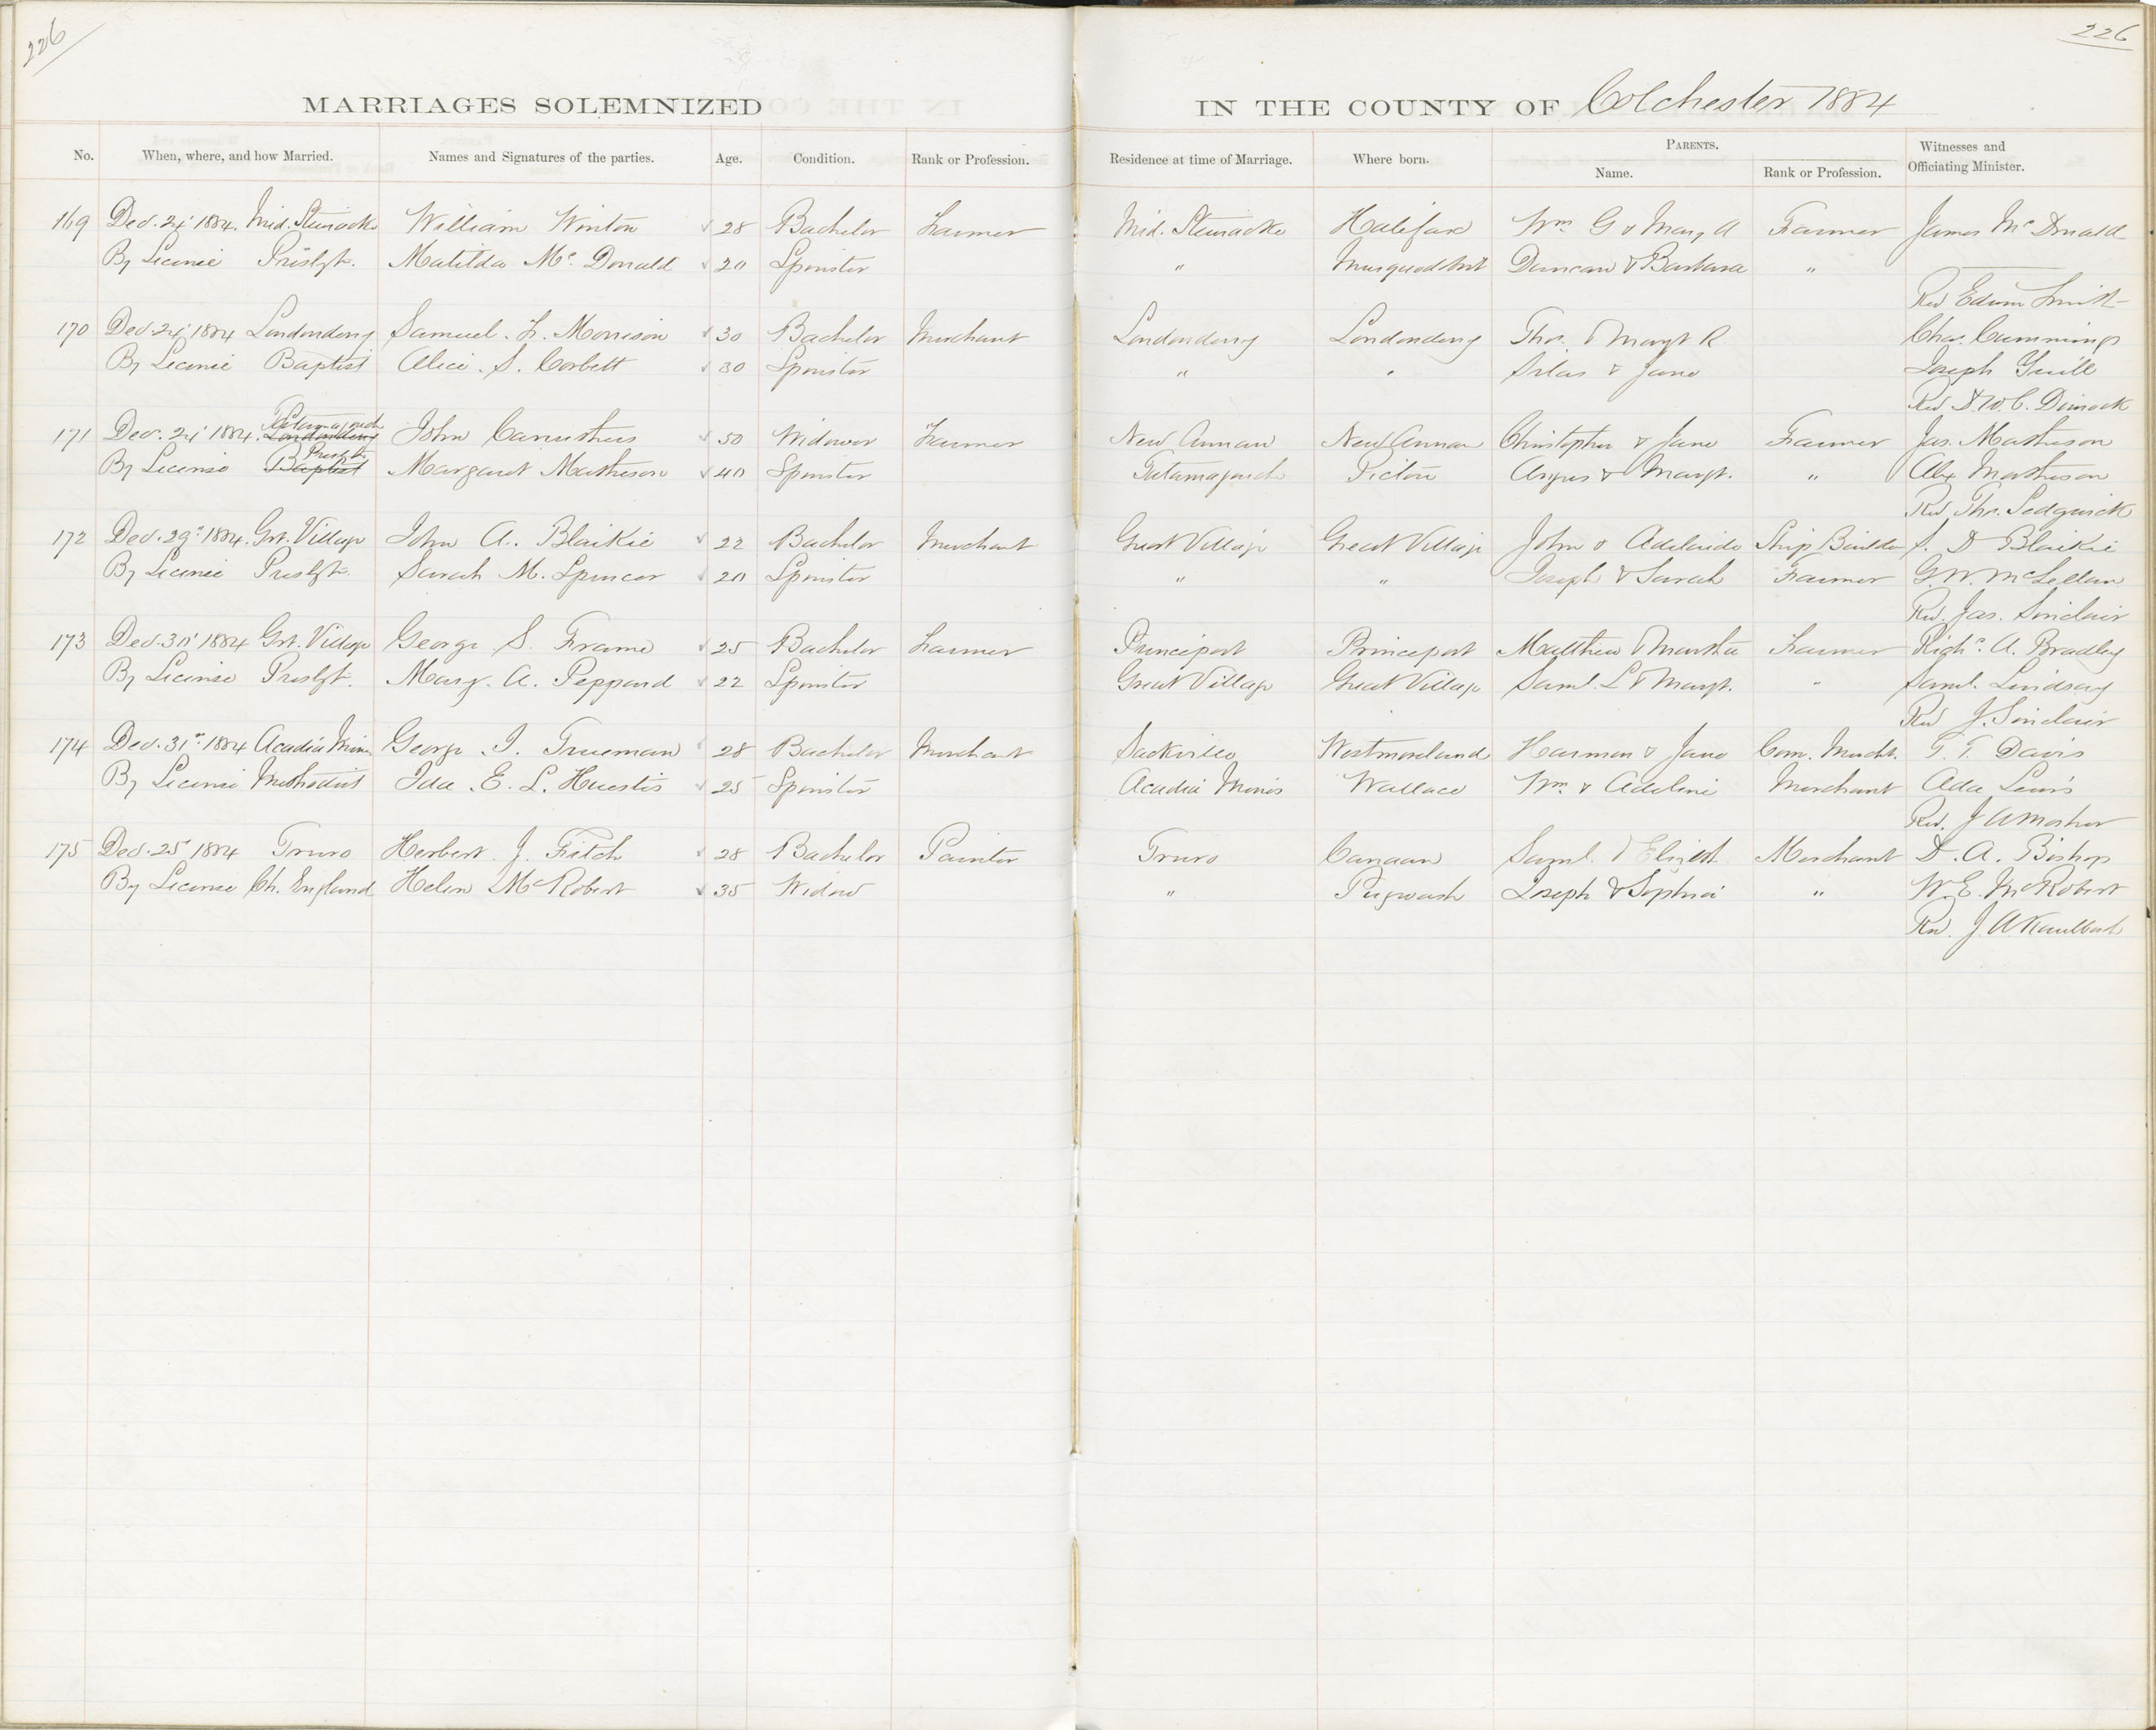 226
226
MARRIAGES SOLEMNIZED IN THE COUNTY OF Colchester 1884
No. When, where, and how Married. Names and Signatures of the parties. Age. Condition. Rank or Profession. Residence at time of Marriage. Where born. PARENTS. Witnesses and Officiating Minister.
Name. Rank or Profession.
169 Dec. 24 1884. Mid. Stewiacke William Winton 28 Bachelor Farmer Mid. Stewiacke Halifax Wm. G & Mary A Farmer James McDonald
By License Presbyt. Matilda Mc. Donald 20 Spinster " Musquodobit Duncan & Barbara "
Rev Edwin Smith
170 Dec. 24 1884 Londonderry Samuel. F. Morrison 30 Bachelor Merchant Londonderry Londonderry Thos. & Margt R Chas. Cummings
By License Baptist Alice. S. Corbett 30 Spinster " " Silas & Jane Joseph Yuill
Rev D. W. C. Dimock
Tatamagouch
171 Dec. 24 1884. Londonderry John Carruthers 50 Widower Farmer New Annan New Annan Christopher & Jane Farmer Jas. Matheson
Presbt.
By License Baptist Margaret Matheson 40 Spinster Tatamagouch Pictou Angus & Margt. " Alex Matheson
Rev Thos. Sedgwick
172 Dec. 29 1884. Grt. Village John A. Blaikie 22 Bachelor Merchant Great Village Great Village John & Adelaide Ship Builder S. D Blaikie
By License Presbyt. Sarah M. Spencer 20 Spinster " " Joseph & Sarah Farmer G. W. McLellan
Rev. Jas. Sinclair
173 Dec. 30 1884 Grt. Village George S. Frame 25 Bachelor Farmer Princeport Princeport Matthew & Martha Farmer Richd. A. Bradley
By License Presbyt. Mary. A. Peppard 22 Spinster Great Village Great Village Saml. L & Margt. " Saml. Lindsay
Rev J. Sinclair
174 Dec. 31st 1884 Acadia Mines George I. Trueman 28 Bachelor Merchant Sackville Westmoreland Harmon & Jane Com. Mercht. T. T. Davis
By License Methodist Ida. E. L. Huestis 25 Spinster Acadia Mines Wallace Wm. & Adeline Merchant Ada Lewis
Rev. J A Mosher
175 Dec. 25 1884 Truro Herbert. J. Fitch 28 Bachelor Painter Truro Canaan Saml. & Elizbt. Merchant D. A. Bishop
By License Ch. England Helen McRobert 35 Widow " Pugwash Joseph & Sophia " W. E. McRobert
Rev. J. A Kaulbach